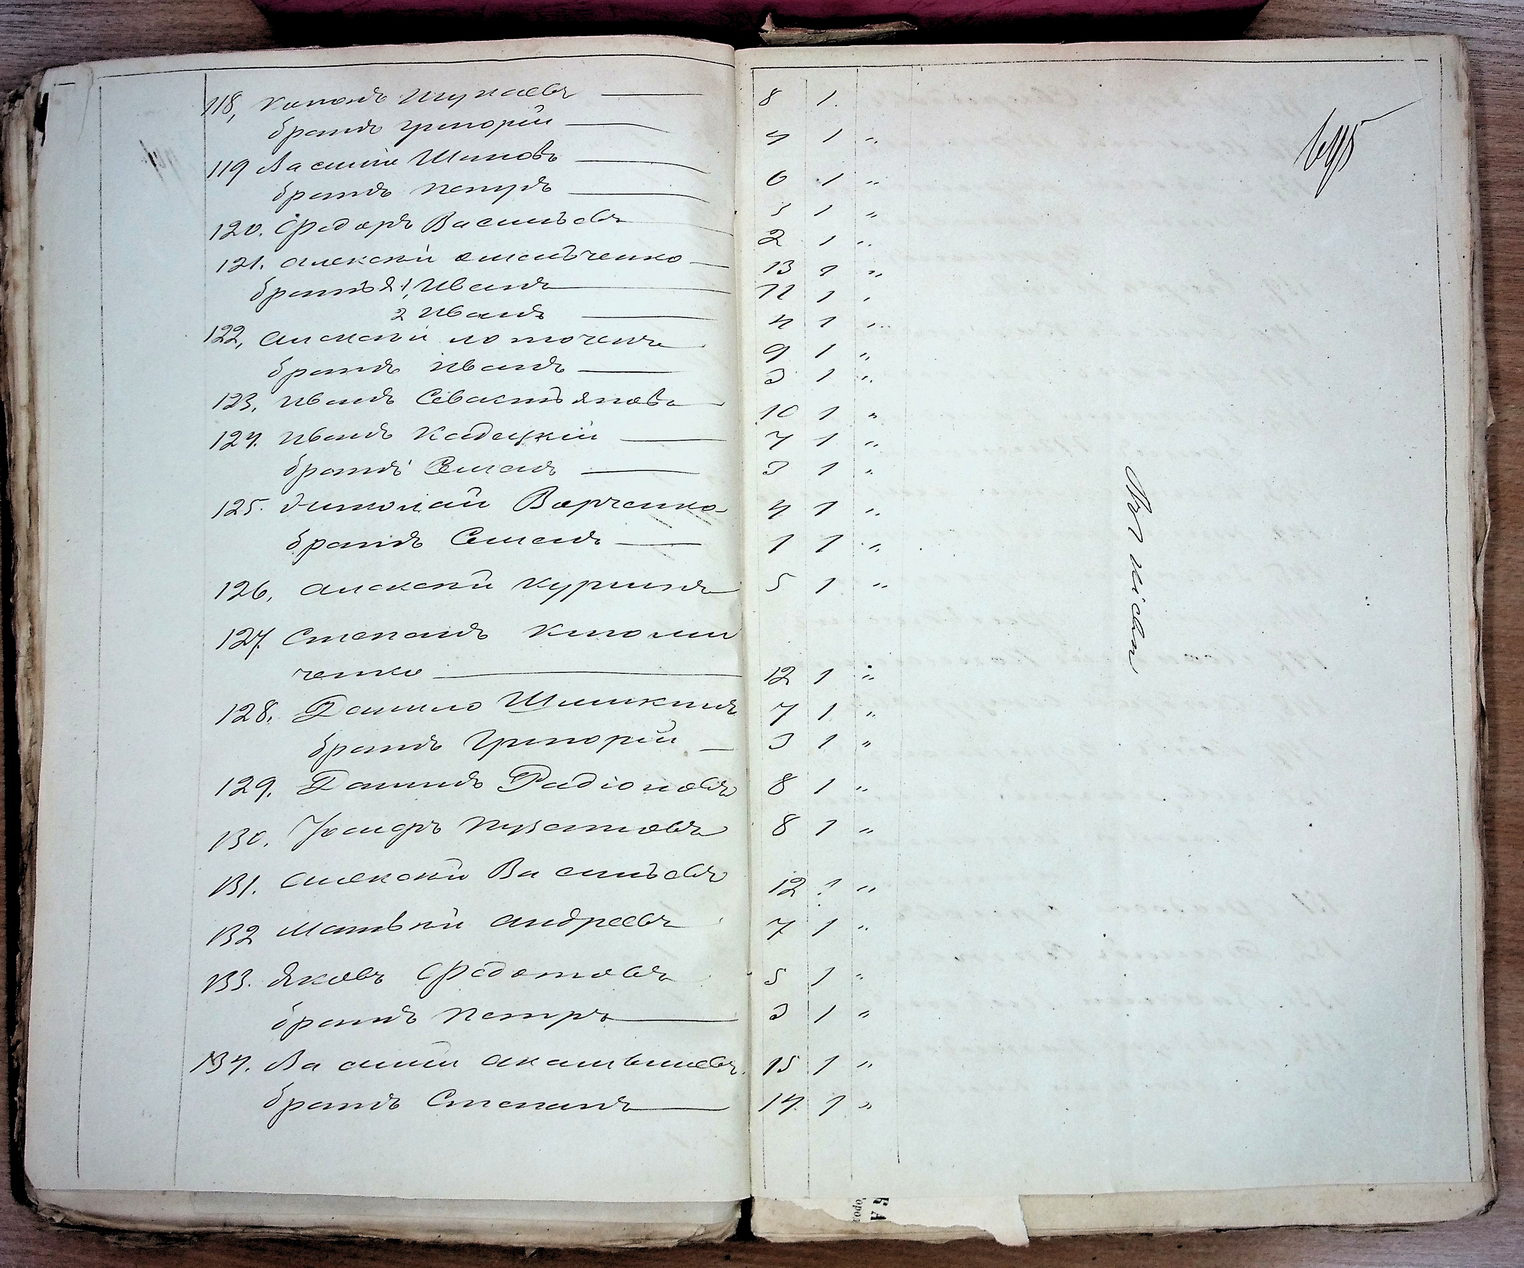 118, Шукаевъ 8 1.
братъ Григорій 4 1 "
119 Василій Шиловъ 6 1 "
братъ Петръ 3 1 "
120. Ѳедоръ Васильевъ 2 1 "
121. Алексѣй Омельченко 13 1 "
братья 1, Иванъ 11 1 "
2 Иванъ 4 1 "
122, Алексѣй 9 1 "
братъ Иванъ 3 1 "
123, Иванъ Севастьяновъ 10 1 "
124. Иванъ Кадецкій 7 1 "
братъ Семенъ 3 1 "
125. Николай Варченко 4 1 "
братъ Семенъ 1 1 "
126, Алексѣй Куринъ 5 1 "
127. Степанъ
ченко 12 1 "
128. Данило Шишкинъ 7 1 "
братъ Григорій 3 1 "
129. Данилъ Радіоновъ 8 1 "
130. Іосифъ Пузановъ 8 1 "
131. Алексѣй Васильевъ 12 1 "
132 Матвѣй Андреевъ 7 1 "
133. Яковъ Ѳедотовъ 5 1 "
братъ Петръ 3 1 "
134. Василій 15 1 "
братъ Степанъ 14 1 "
695